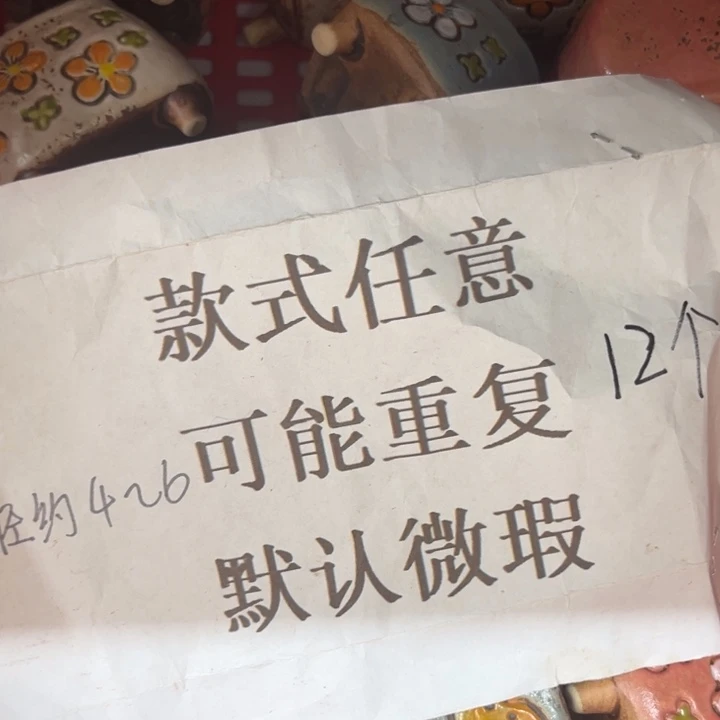 款式任意
可能重复
12个
径约4~6
默认微瑕